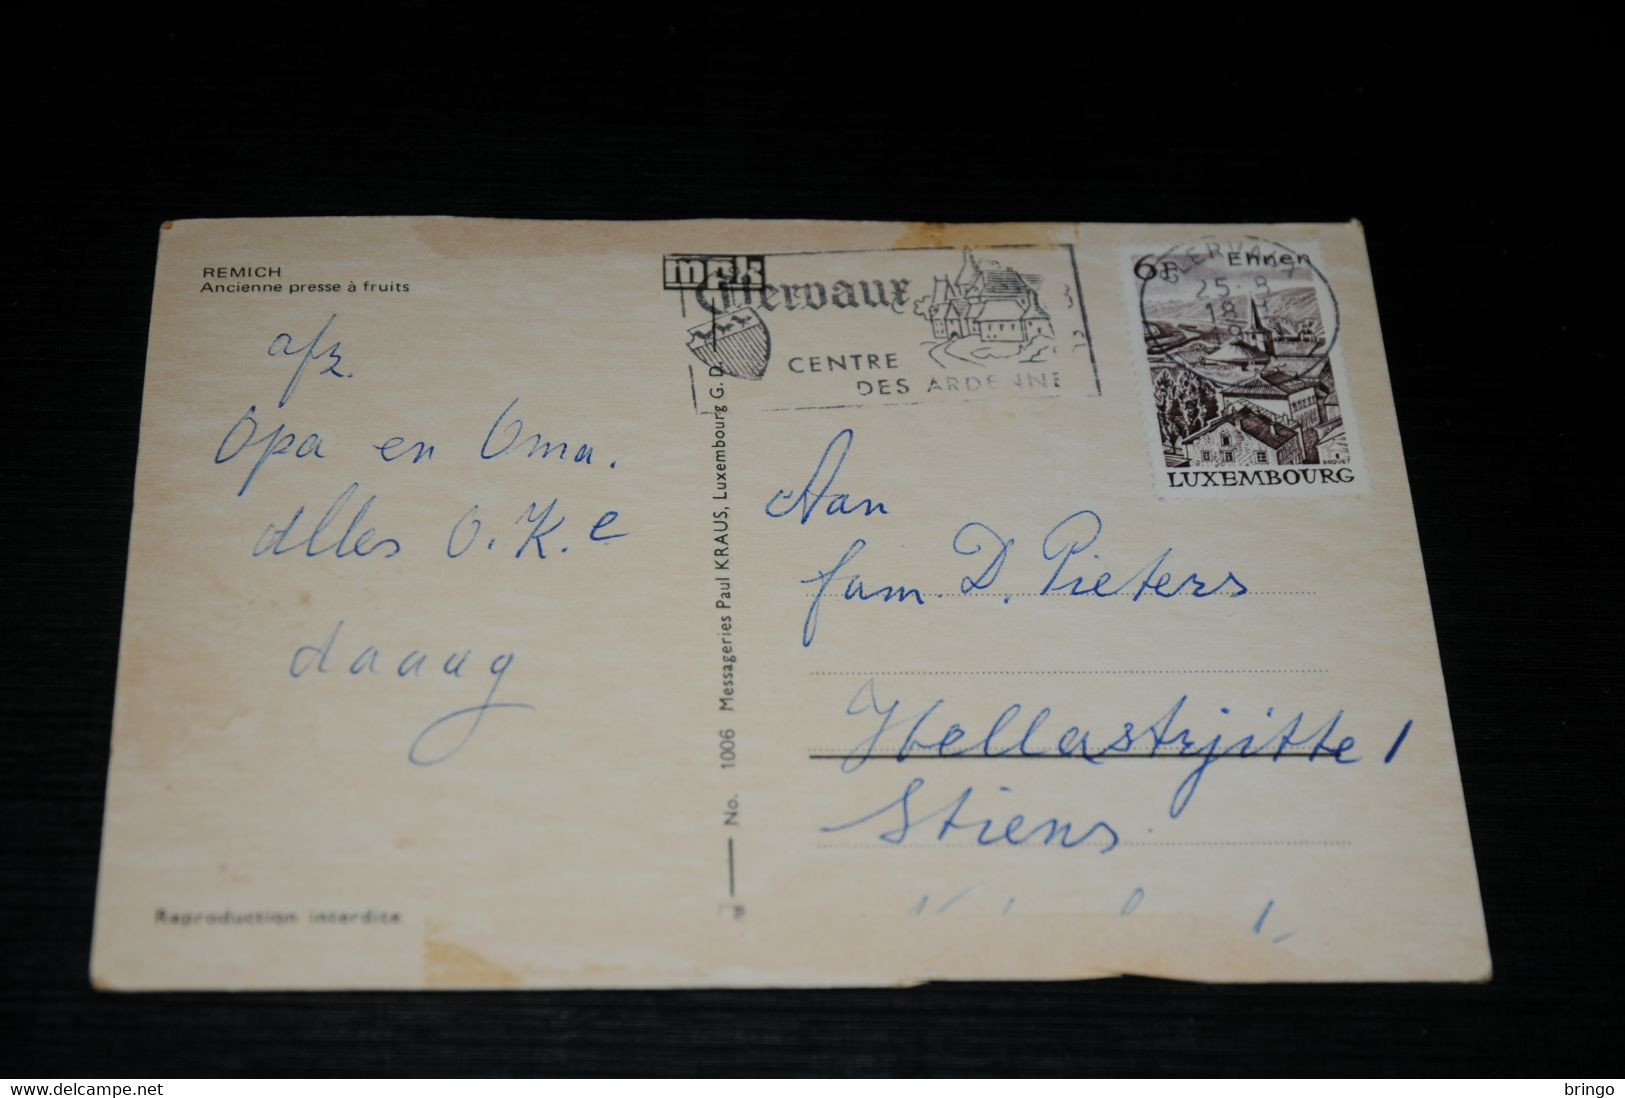 REMICH
Ancienne presse à fruits
afz.
Opa en Oma.
Alles O.K.e
daaag
Reproduction interdite
No. 1006 Messageries Paul KRAUS, Luxembourg G. D.
mpk
Clervaux
CENTRE
DES ARDENNE
CLERVAUX
25-8
18
6F Ehnen
LUXEMBOURG
Aan
fam. D. Pieters
Hellastrjitte 1
Stiens.
delcampe.net
bringo